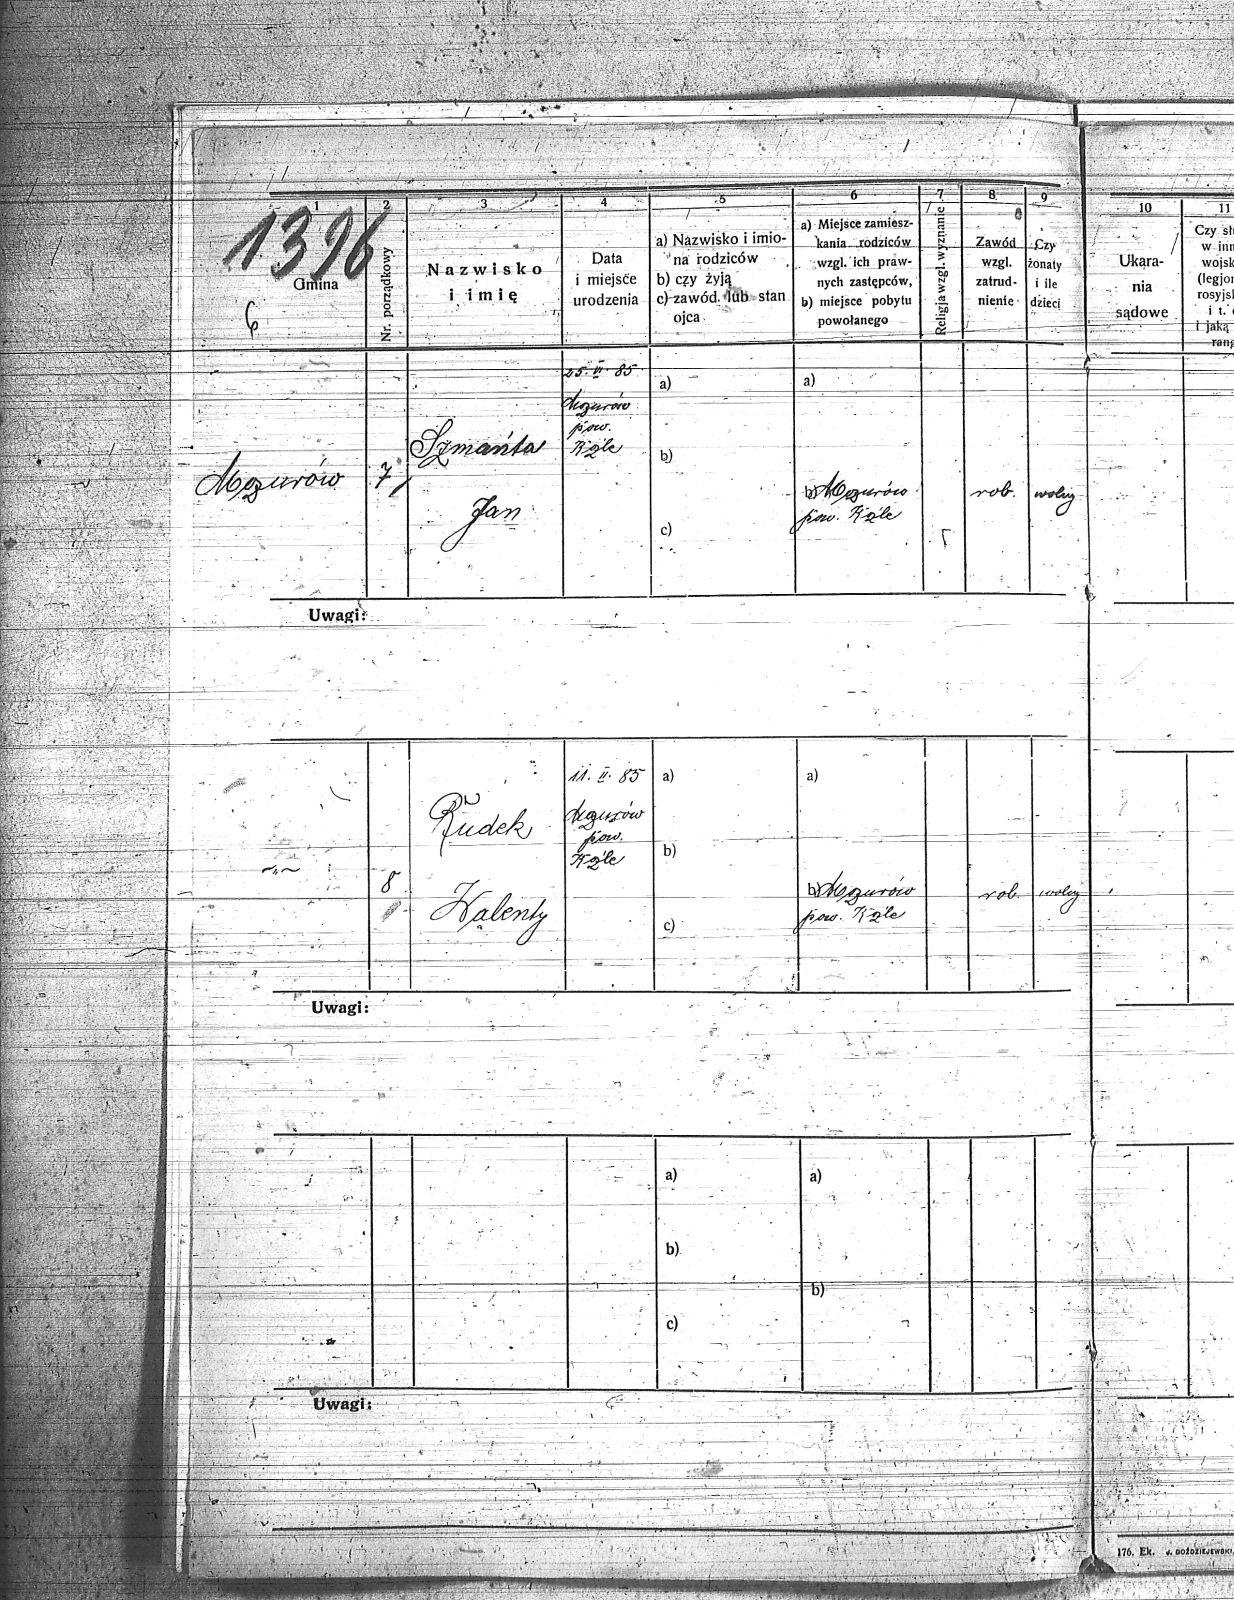 1396
6
1
Gmina
2
Nr. porządkowy
3
Nazwisko
i imię
4
Data
i miejsce
urodzenia
5
a) Nazwisko i imio-
na rodziców
b) czy żyją
c) zawód lub stan
ojca
6
a) Miejsce zamiesz-
kania rodziców
wzgl. ich praw-
nych zastępców,
b) miejsce pobytu
powołanego
7
Religja wzgl. wyznanie
8
Zawód
wzgl.
zatrud-
nienie
9
Czy
żonaty
i ile
dzieci
10
Ukara-
nia
sądowe
11
Czy sł
w inn
wojsk
(legjon
rosyjsk
i t.
i jaką
rang
Mozurów
7
Szmańta
Jan
25. VI. 85
Mozurów
pow.
Koźle
a)
b)
c)
a)
b) Mozurów
pow. Koźle
rob.
wolny
Uwagi:
8
Rudek
Walenty
11. II. 85
Mozurów
pow.
Koźle
a)
b)
c)
a)
b) Mozurów
pow. Koźle
rob.
wolny
Uwagi:
a)
b)
c)
a)
b)
Uwagi:
176. Ek.